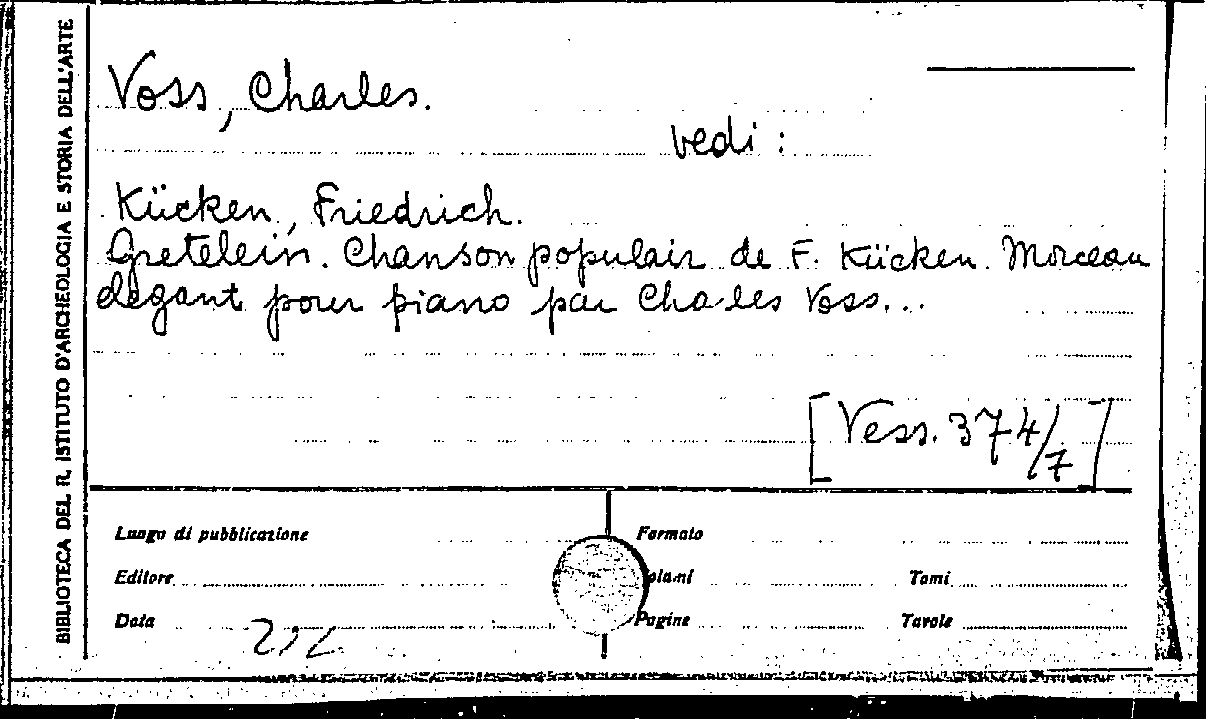 BIBLIOTECA DEL R. ISTITUTO D'ARCHEOLOGIA E STORIA DELL'ARTE
Voss, Charles.
vedi :
Kücken, Friedrich.
Gretelein. Chanson populair de F. Kücken. Morceau
élégant pour piano par Charles Voss...
[Vess. 374/7]
Luogo di pubblicazione
Formato
Editore
Tomi
Data
Pagine
Tavole